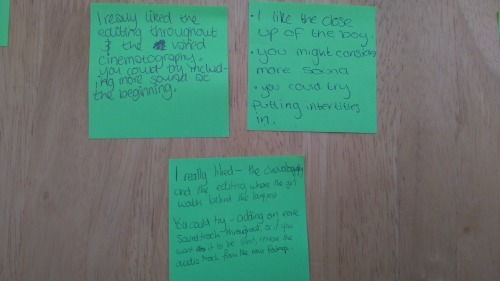 I really liked the
editing throughout
& the varied
cinematography.
You could try includ-
ing more sound at
the beginning.
• I like the close
up of the boy.
• you might consider
more sound
• you could try
putting intertitles
in.
I really liked - the cinematography
and the editing where the girl
walks behind the
You could try - adding an
soundtrack throughout, or if you
want it to be silent, remove the
audio track from the footage.